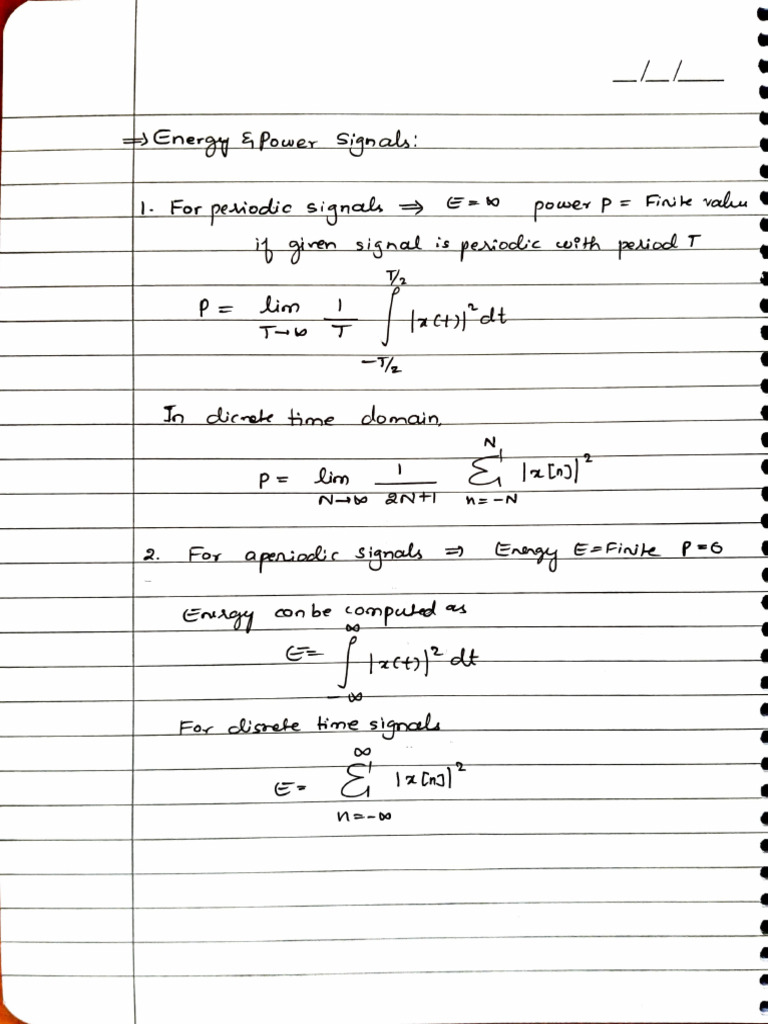 _/_/__
⇒ Energy & Power Signals:
1. For periodic signals ⇒ E = ∞ power P = Finite value
if given signal is periodic with period T
P = lim T→∞ 1/T ∫_{-T/2}^{T/2} |x(t)|² dt
In dicrete time domain,
P = lim N→∞ 1/(2N+1) Σ_{n=-N}^{N} |x[n]|²
2. For aperiodic signals ⇒ Energy E = Finite P = 0
Energy can be computed as
E = ∫_{-∞}^{∞} |x(t)|² dt
For disrete time signals
E = Σ_{n=-∞}^{∞} |x[n]|²